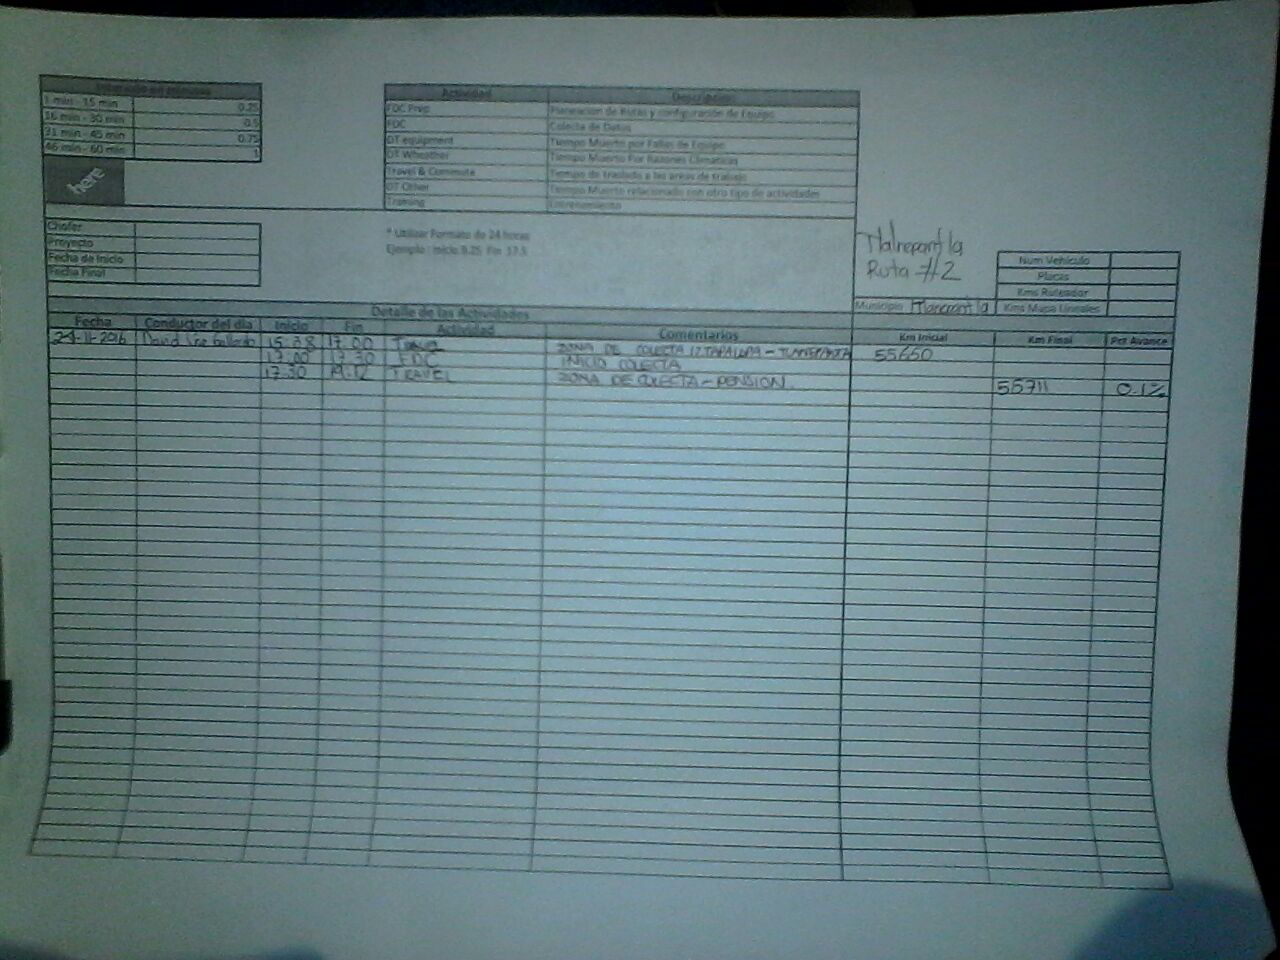 1 min - 15 min 0.25
16 min - 30 min 0.5
31 min - 45 min 0.75
46 min - 60 min 1
here
Actividad Descripcion
FDC Prep Planeacion de Rutas y configuración de Equipo
FDC Colecta de Datos
DT equipment Tiempo Muerto por Fallas de Equipo
DT Wheather Tiempo Muerto Por Razones Climaticas
Travel & Commute Tiempo de traslado a las areas de trabajo
DT Other Tiempo Muerto relacionado con otro tipo de actividades
Training Entrenamiento
Chofer
Proyecto
Fecha de Inicio
Fecha Final
* Utilizar Formato de 24 horas
Ejemplo : Inicio 8.25 Fin 17.5
Tlalnepantla
Ruta #2
Num Vehículo
Placas
Kms Ruteador
Municipio Tlalnepantla Kms Mapa Lineales
Detalle de las Actividades
Fecha Conductor del dia Inicio Fin Actividad Comentarios Km Inicial Km Final Pct Avance
David 15:38 17:00 Travel ZONA DE COLECTA IZTAPALAPA - 55650
17:00 17:30 FDC INICIO COLECTA
17:30 19:12 TRAVEL ZONA DE COLECTA - PENSION 55711 0.1%